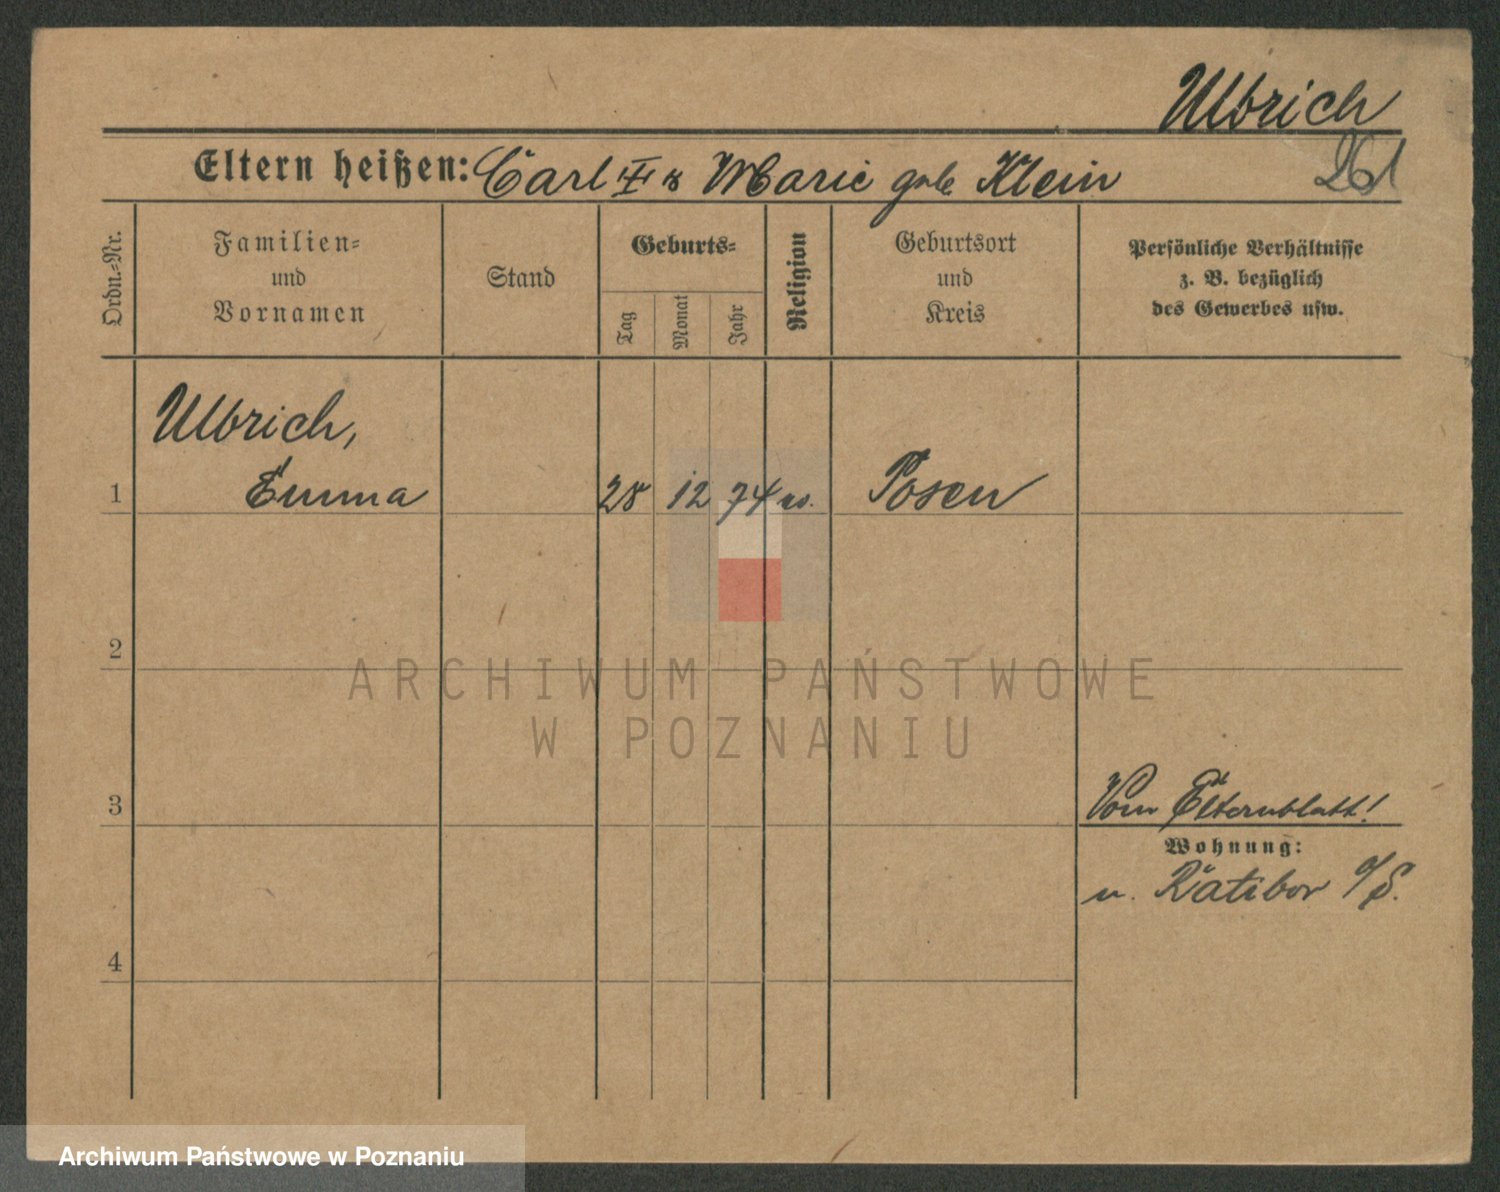 Ulbrich
Eltern heißen: Carl u Marie geb Klein
261
Ordn.-Nr.
Familien-
und
Vornamen
Stand
Geburts-
Tag
Monat
Jahr
Religion
Geburtsort
und
Kreis
Persönliche Verhältnisse
z. B. bezüglich
des Gewerbes usw.
Ulbrich,
1 Emma 28 12 74 ev. Posen
2
ARCHIWUM PAŃSTWOWE
W POZNANIU
3 Vom Elternblatt!
Wohnung:
n. Ratibor O/S.
4
Archiwum Państwowe w Poznaniu